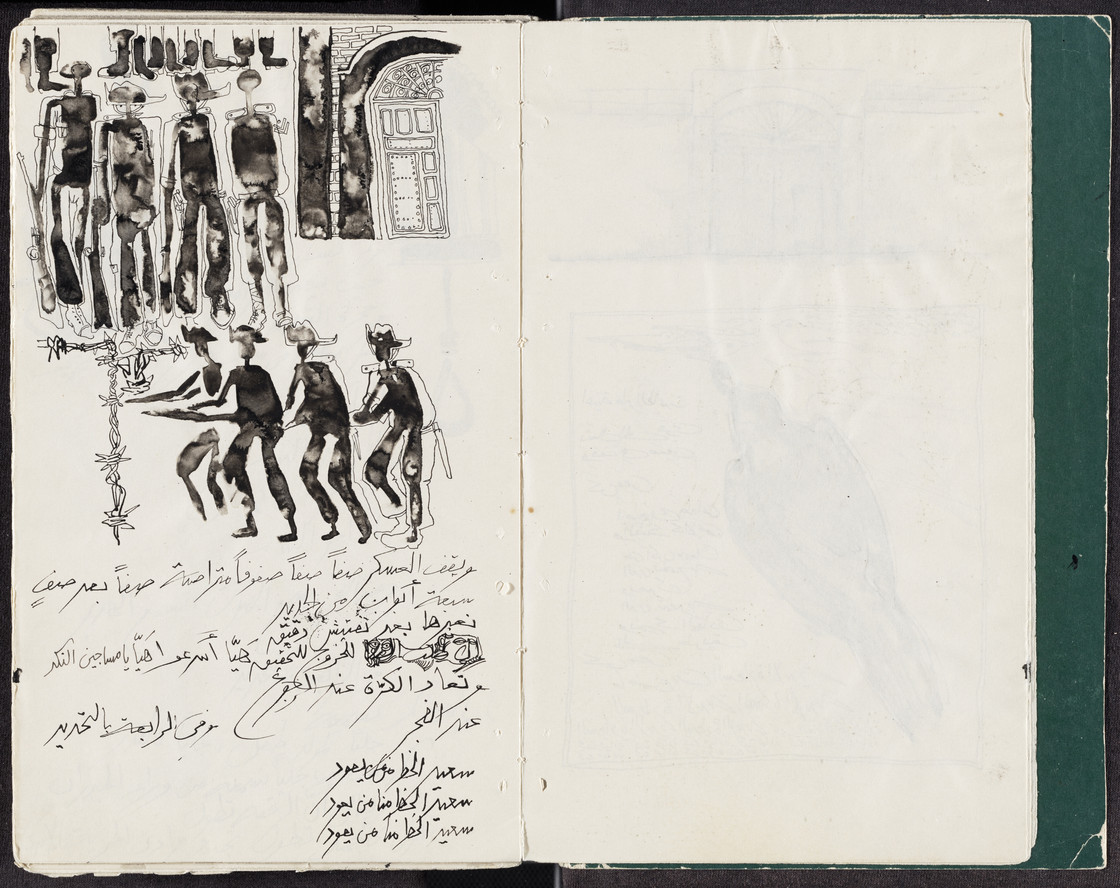 ويقف العسكر صفاً صفاً صفوفاً متراصة صفاً بعد صفٍ
سبعة أبواب من الحديد
نعبرها بعد تفتيش دقيق
الخروج للتحقيق هيّا أسرعوا هَيّا يا مساجين النكد
وتعاد الكرّة عند الرجوع
عند الفجر وفي الرابعة بالتحديد
سعيد الحظ من يعود
سعيد الحظ منا من يعود
سعيد الحظ منا من يعود